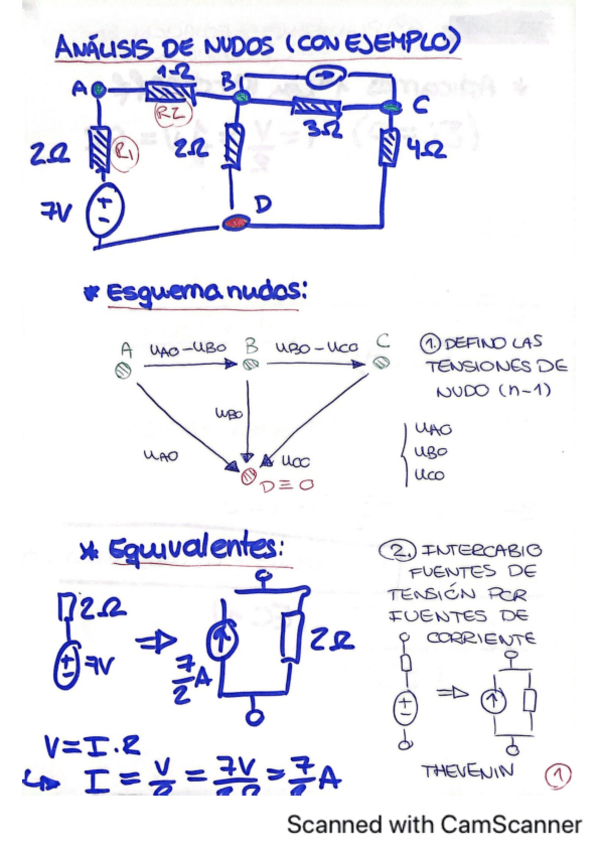 ANÁLISIS DE NUDOS (CON EJEMPLO)
A 1Ω B C
R2
3Ω
2Ω R1 2Ω 4Ω
7V D
* Esquema nudos:
A UAO-UBO B UBO-UCO C
UBO
UAO UCO
D≡0
1. DEFINO LAS
TENSIONES DE
NUDO (n-1)
UAO
UBO
UCO
* Equivalentes:
2Ω
7V
7/2 A
2Ω
V=I·R
↳ I = V/R = 7V/2Ω = 7/2 A
2. INTERCABIO
FUENTES DE
TENSIÓN POR
FUENTES DE
CORRIENTE
THEVENIN
1
Scanned with CamScanner